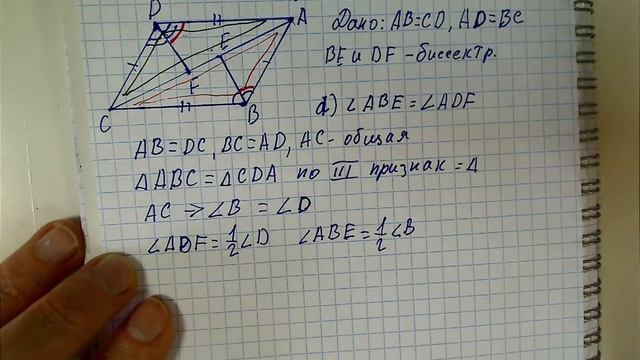 D
A
E
F
C
B
Дано: AB=CD, AD=BC
BE и DF -биссектр.
d) ∠ABE=∠ADF
AB=DC, BC=AD, AC-общая
△ABC=△CDA по III признак = △
AC ⇒ ∠B = ∠D
∠ADF=1/2∠D ∠ABE=1/2∠B